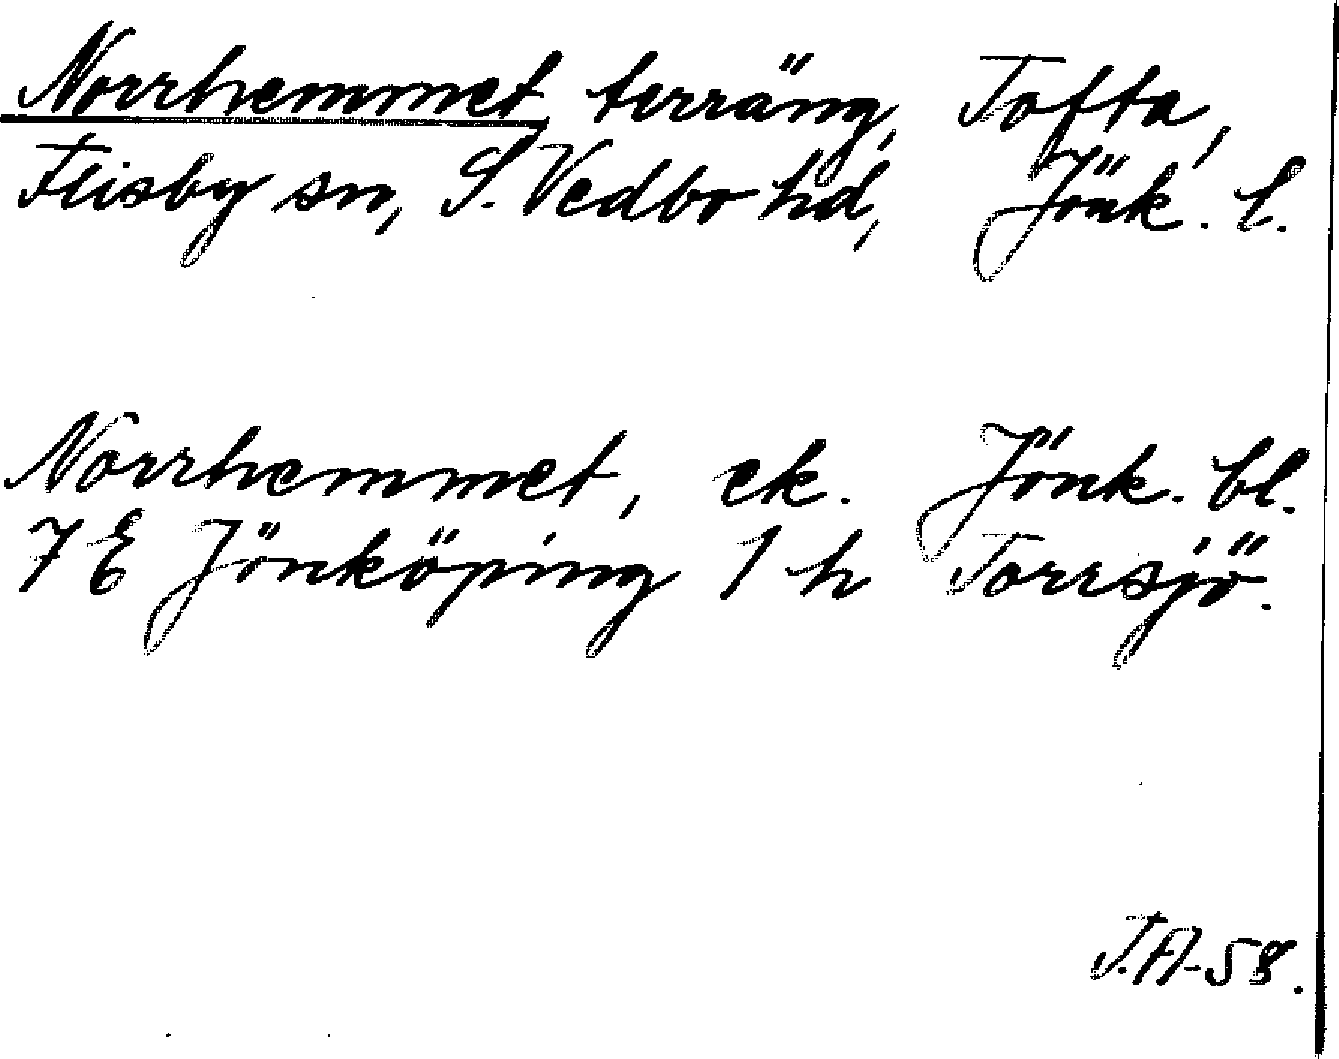 Norrhemmet terräng, Tofta,
Flisby sn, S. Vedbo hd, Jönk. l.
Norrhemmet, ek. Jönk. bl.
7 E Jönköping 1 h Torrsjö.
T.A-58.